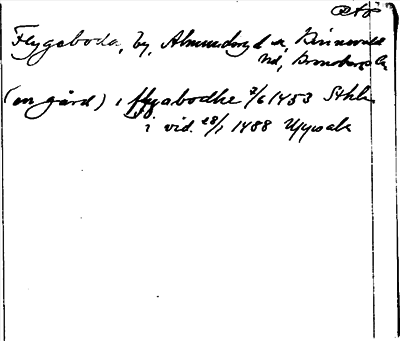 Flygeboda, by, Almundsryd sn, Kinnevalds
hd, Kronobergs l.
(en gård) i flygabodhe 2/6 1453 Sthlm
i vid. 28/1 1488 Uppsala